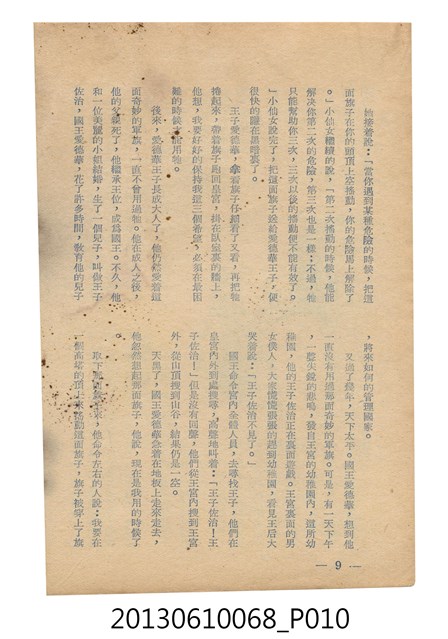 她接着說：「當你遇到某種危險的時候，把這
面旗子在你的頭頂上空搖動，你的危險馬上解除了
。」小仙女繼續的說，「第二次搖動的時候，他能
解决你第二次的危險，第三次也是一樣：不過，牠
只能幫助你三次，三次以後的搖動便不能有效了。
」小仙女說完了，把這面旗子送給愛德華王子，便
很快的隱在黑暗裏了。
王子愛德華，拿着旗子仔細看了又看，再把牠
捲起來，帶着旗子跑回皇宮，掛在臥室裏的牆上，
他想，我要好好的保持我這三個希望，必須在最困
難的時候，使用牠。
後來，愛德華王子長成大人了，他仍舊愛着這
面奇妙的軍旗，一直不曾用過牠。他在成人之後，
他的父親死了，他繼承王位，成爲國王。不久，他
和一位美麗的小姐結婚，生了一個兒子，叫做王子
佐治，國王愛德華，花了許多時間，敎育他的兒子
，將來如何的管理國家。
又過了幾年，天下太平。國王愛德華，想到他
一直沒有用過那面奇妙的軍旗。可是，有一天下午
，一聲尖銳的悲鳴，發自王宮的幼稚園內，這所幼
稚園，他的王子佐治正在裏面遊戲。王宮裏面的男
女僕人，大家慌慌張張的趕到幼稚園，看見王后大
哭着說：「王子佐治不見了。」
國王命令宮內全體人員，去尋找王子，他們在
皇宮內外到處搜尋，高聲地叫着：「王子佐治！王
子佐治！」但是沒有回聲，他們從王宮內搜到王宮
外，從山頂搜到山谷，結果仍是一空。
天黑了，國王愛德華急着在地板上走來走去，
他忽然想起那面旗子，他說，現在是我用的時候了
取下，他命令左右的人說：我要在
一個高塔的頂上來搖動這面旗子，旗子被穿上了旗
— 9 —
20130610068_P010